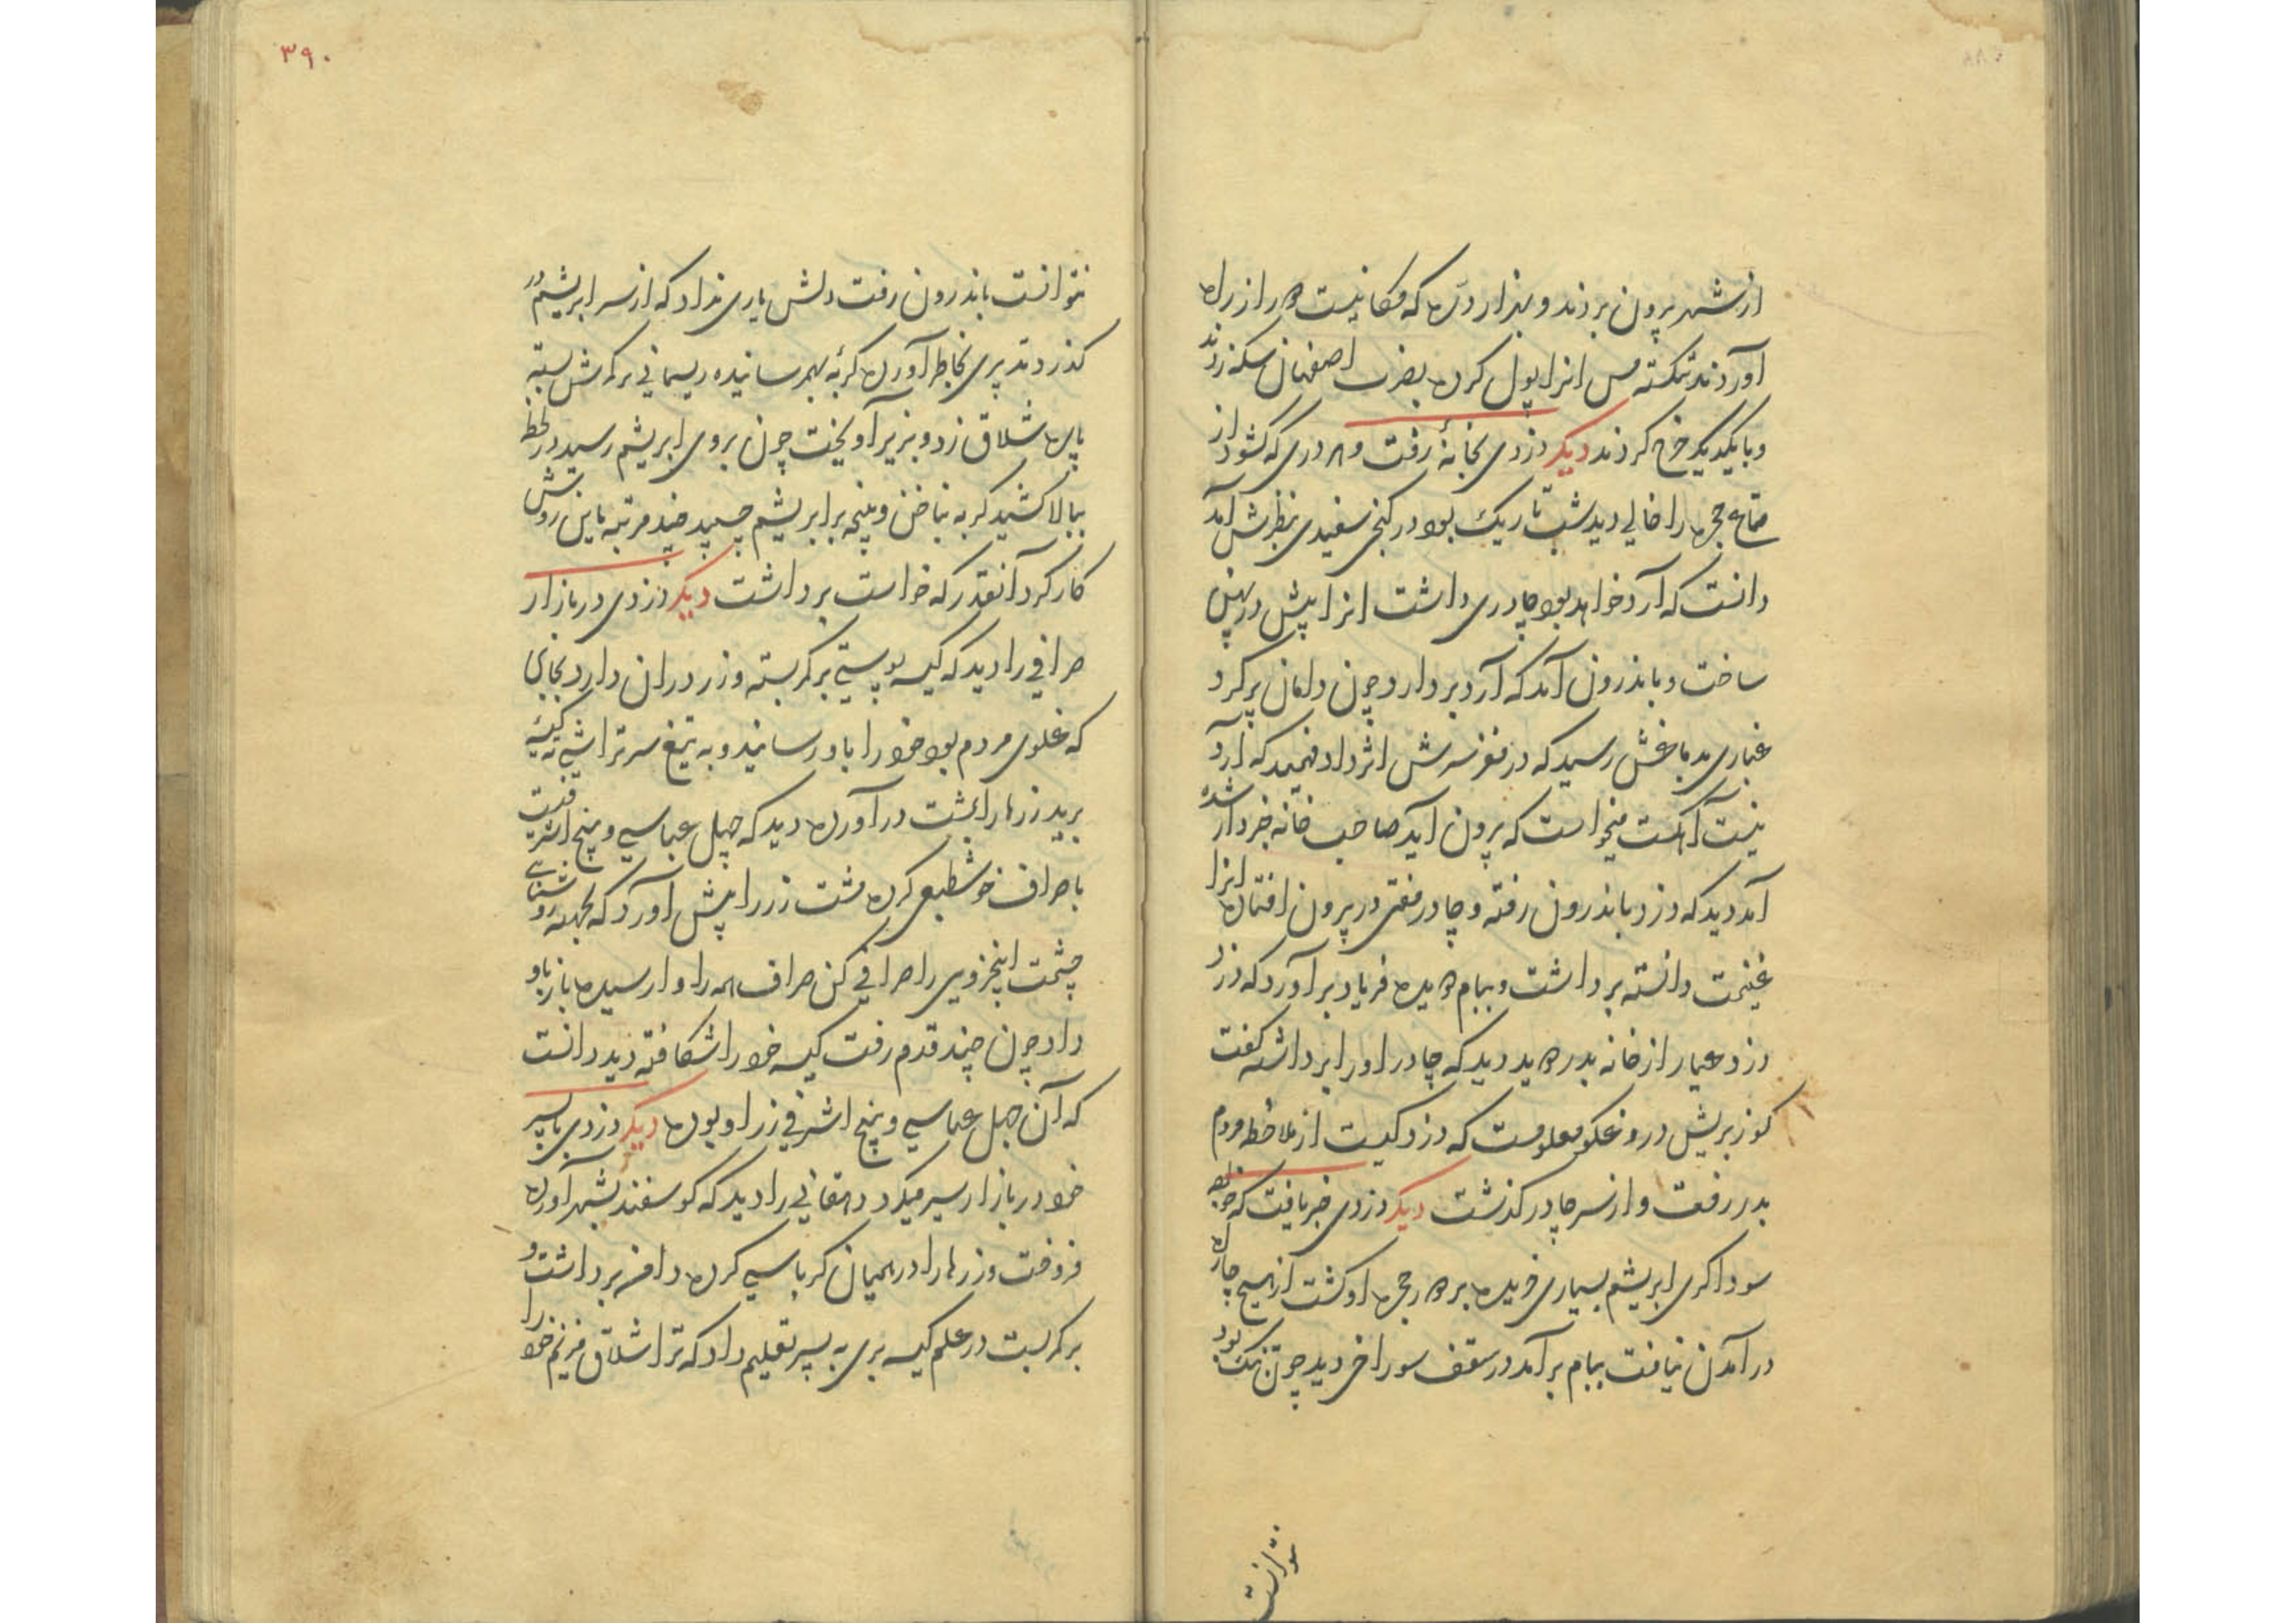 از شهر بیرون بردند و بهزار دره که مکانیست در راه
آوردند شکسته مس انرا پول کرده بضرب اصفهان سکه زدند
و با یکدیگر خرج کردند دیگر دزدی بخانهٔ رفت و هر دری که کشود از
متاع حجره را خالی دید شب تاریک بود در کنجی سفیدی بنظرش آمد
دانست که آرد خواهد بود چادری داشت انرا پیش در پهن
ساخت و باندرون آمد که آرد بردارد چون دامان پر کرد
غباری بدماغش رسید که در مغز سرش اثر داد فهمید که آرد
نیست آهکست میخواست که بیرون آید صاحب خانه خبردار شده
آمد دید که دزد باندرون رفته و چادر مفتی در بیرون افتاده انرا
غنیمت دانسته برداشت و ببام دویده فریاد برآورد که دزد
دزد عیار از خانه بدر دوید دید که چادر او را برداشته گفت
کوز بریش دروغکو معلومست که دزد کیست از ملاحظه مردم
بدر رفت و از سر چادر کذشت دیگر دزدی خبر یافت که خواجه
سوداکری ابریشم بسیاری خریده بر دور حجره او کشت از هیچ چاره
در آمدن نیافت ببام برآمد در سقف سوراخی دید چون تنک بود
نتوانست
۳۹۰
نتوانست باندرون رفت دلش یاری نداد که از سر ابریشم در
کذرد تدبیری بخاطر آورده کربهٔ بهمرسانیده ریسمانی بر کمرش بسته
پاره شلاق زد و بزیر آویخت چون بروی ابریشم رسید در لحظه
ببالا کشید کربه بناخن و پنجه بر ابریشم چسپید چند مرتبه باین روش
کار کرد آنقدر که خواست برداشت دیگر دزدی در بازار
صرافی را دید که کیسه پوستی بر کمر بسته و زر در ان دارد بجایی
که غلوی مردم بود خود را باو رسانید و به تیغ سرتراشی ته کیسهٔ
برید زرها را بمشت درآورده دید که چهل عباسی و پنج اشرفیست
با صراف خوشطبعی کرده مشت زر را پیش آورد که بجهته روشنایی
چشمت اینجزوی را صرافی کن صراف همه را وارسیده باز باو
داد چون چند قدم رفت کیسه خود را شکافته دید دانست
که آن چهل عباسی و پنج اشرفی زر او بوده دیگر دزدی با پسر
خود در بازار سیر میکرد دهقانی را دید که کوسفند بشهر آورده
فروخت و زرها را در همیان کرباسی کرده دامن برداشت و
بر کمر بست در علم کیسه بری به پسر تعلیم داد که ترا شلاق میزنم خود را